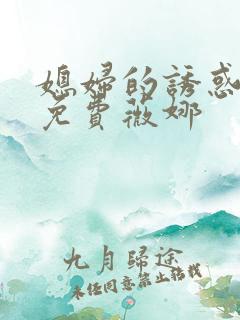 媳婦的誘惑
免費薇娜
九月歸途
未經同意禁止轉載